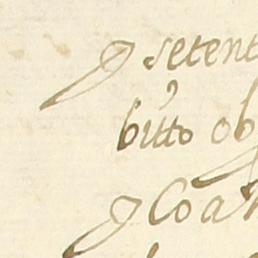 setent
bitto ob
Coa